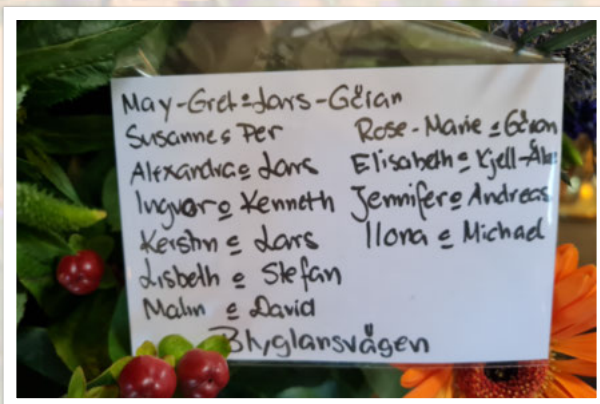 May-Gret o Lars-Göran
Susanne o Per
Alexandra o Lars
Ingvar o Kenneth
Kerstin o Lars
Lisbeth o Stefan
Malin o David
Rose-Marie o Göran
Elisabeth o Kjell-Åke
Jennifer o Andreas
Ilona o Michael
Blyglansvägen